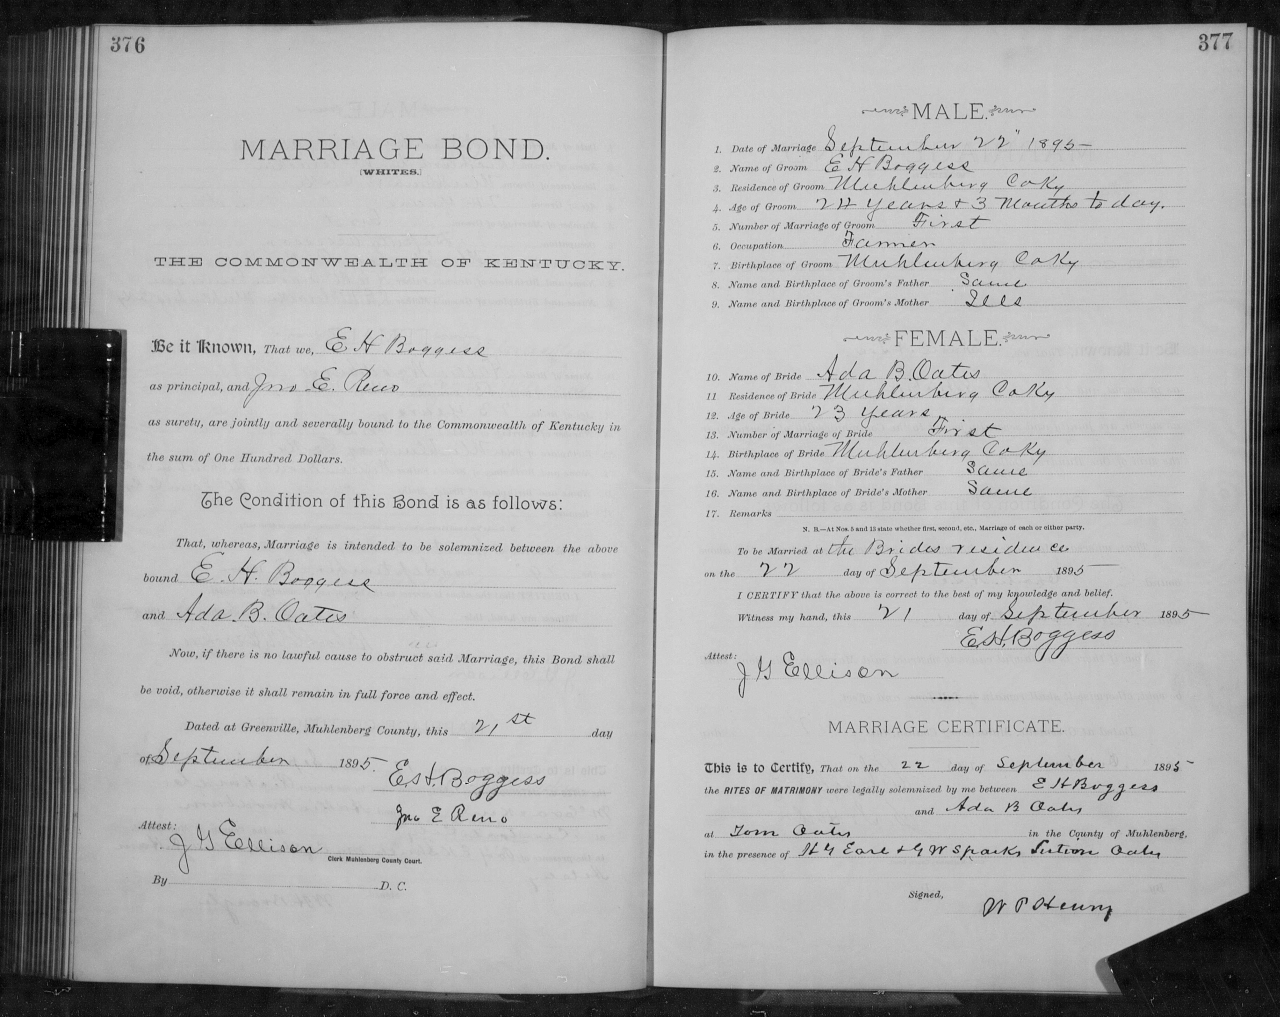 376
MARRIAGE BOND.
[WHITES.]
THE COMMONWEALTH OF KENTUCKY.
Be it Known, That we, E H Boggess
as principal, and Jno E. Reno
as surety, are jointly and severally bound to the Commonwealth of Kentucky in
the sum of One Hundred Dollars.
The Condition of this Bond is as follows:
That, whereas, Marriage is intended to be solemnized between the above
bound E. H. Boggess
and Ada. B. Oates
Now, if there is no lawful cause to obstruct said Marriage, this Bond shall
be void, otherwise it shall remain in full force and effect.
Dated at Greenville, Muhlenberg County, this 21st day
of September 1895.
E H Boggess
Jno E Reno
Attest:
J G Ellison
Clerk Muhlenberg County Court.
By D. C.
377
MALE.
1. Date of Marriage September 22" 1895
2. Name of Groom E H Boggess
3. Residence of Groom Muhlenberg Co Ky
4. Age of Groom 24 years & 3 Months to day.
5. Number of Marriage of Groom First
6. Occupation Farmer
7. Birthplace of Groom Muhlenberg Co Ky
8. Name and Birthplace of Groom's Father Same
9. Name and Birthplace of Groom's Mother Ills
FEMALE.
10. Name of Bride Ada B. Oates
11 Residence of Bride Muhlenberg Co Ky
12. Age of Bride 23 years
13. Number of Marriage of Bride First
14. Birthplace of Bride Muhlenberg Co Ky
15. Name and Birthplace of Bride's Father Same
16. Name and Birthplace of Bride's Mother Same
17. Remarks
N. B.—At Nos. 5 and 13 state whether first, second, etc., Marriage of each or either party.
To be Married at the Brides residence
on the 22 day of September 1895
I CERTIFY that the above is correct to the best of my knowledge and belief.
Witness my hand, this 21 day of September 1895
E H Boggess
Attest:
J G Ellison
MARRIAGE CERTIFICATE.
This is to Certify, That on the 22 day of September 1895
the RITES OF MATRIMONY were legally solemnized by me between E H Boggess
and Ada B Oates
at Tom Oates in the County of Muhlenberg,
in the presence of H G Earl & G W Sparks Oates
Signed,
W P Henry